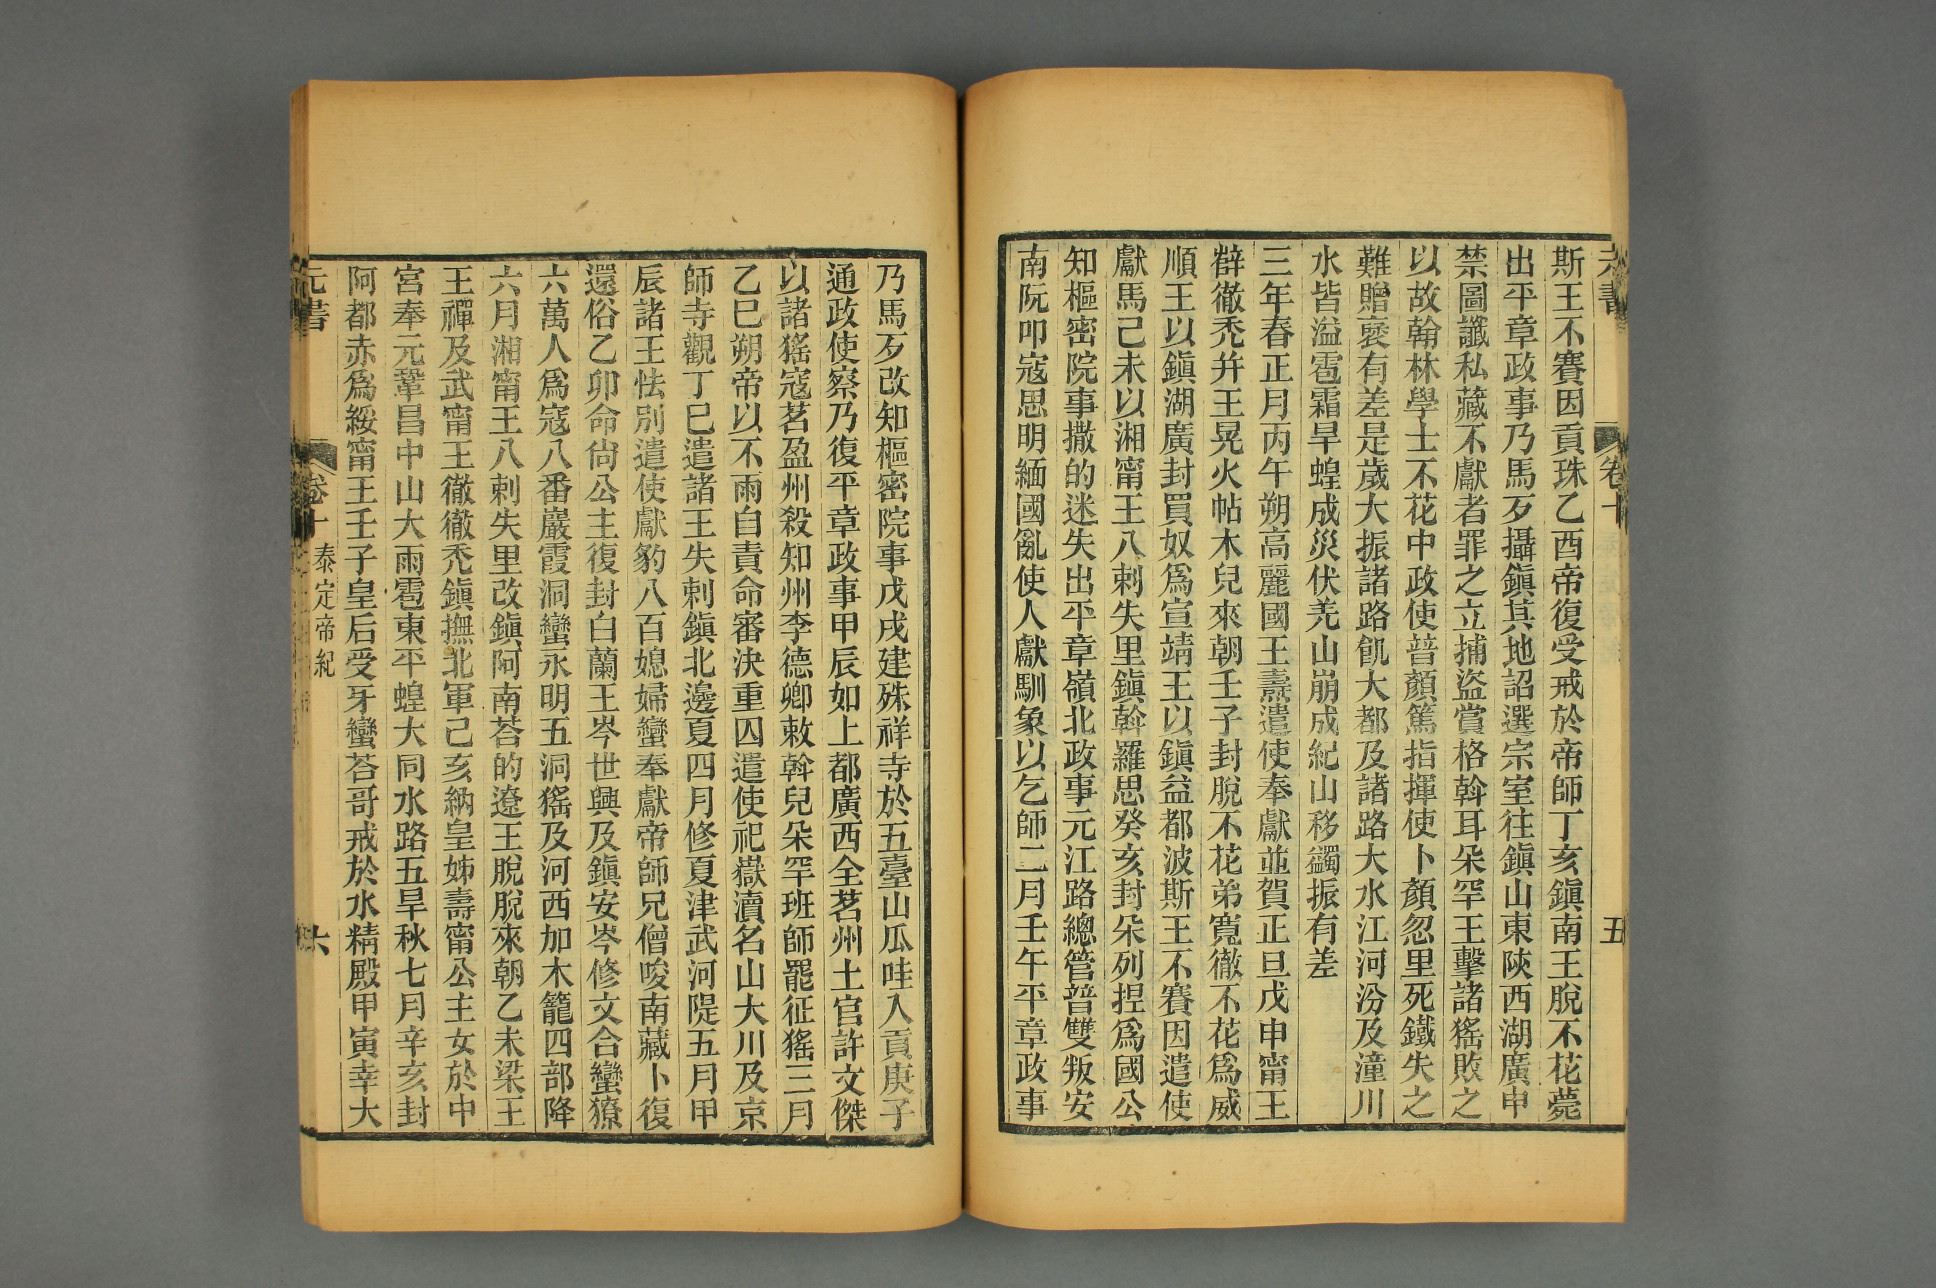 斯王不賽因貢珠乙酉帝復受戒於帝師丁亥鎭南王脫不花薨
出平章政事乃馬歹攝鎭其地詔選宗室往鎭山東陜西湖廣申
禁圖讖私藏不獻者罪之立捕盜賞格斡耳朵罕王擊諸猺敗之
以故翰林學士不花中政使普顏篤指揮使卜顏忽里死鐵失之
難贈襃有差是歲大振諸路飢大都及諸路大水江河汾及潼川
水皆溢雹霜旱蝗成災伏羌山崩成紀山移蠲振有差
三年春正月丙午朔高麗國王燾遣使奉獻並賀正旦戊申甯王
辥徹禿并王晃火帖木兒來朝壬子封脫不花弟寬徹不花爲威
順王以鎭湖廣封買奴爲宣靖王以鎭益都波斯王不賽因遣使
獻馬己未以湘甯王八剌失里鎭斡羅思癸亥封朵列捏爲國公
知樞密院事撒的迷失出平章嶺北政事元江路總管普雙叛安
南阮叩寇思明緬國亂使人獻馴象以乞師二月壬午平章政事
乃馬歹改知樞密院事戊戌建殊祥寺於五臺山瓜哇入貢庚子
通政使察乃復平章政事甲辰如上都廣西全茗州土官許文傑
以諸猺寇茗盈州殺知州李德卿敕斡兒朵罕班師罷征猺三月
乙巳朔帝以不雨自責命審決重囚遣使祀嶽瀆名山大川及京
師寺觀丁巳遣諸王失剌鎭北邊夏四月修夏津武河隄五月甲
辰諸王怯別遣使獻豹八百媳婦蠻奉獻帝師兄僧唆南藏卜復
還俗乙卯命尙公主復封白蘭王岑世興及鎭安岑修文合蠻獠
六萬人爲寇八番巖霞洞蠻永明五洞猺及河西加木籠四部降
六月湘甯王八剌失里改鎭阿南荅的遼王脫脫來朝乙未梁王
王禪及武甯王徹徹禿鎭撫北軍己亥納皇姊壽甯公主女於中
宮奉元鞏昌中山大雨雹東平蝗大同水路五旱秋七月辛亥封
阿都赤爲綏甯王壬子皇后受牙蠻荅哥戒於水精殿甲寅幸大
元書
卷十
泰定帝紀
六